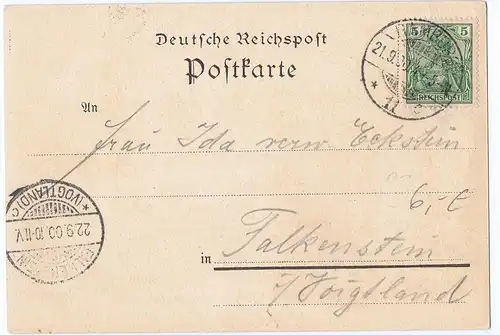 Deutsche Reichspost
Postkarte
5 5
21.9.
REICHSPOST
11
An
Frau Ida verw Eckstein
(VOGTLAND)
22.9.00.10-11V.
FALKENSTEIN
6,- €
in Falkenstein
i/Voigtland